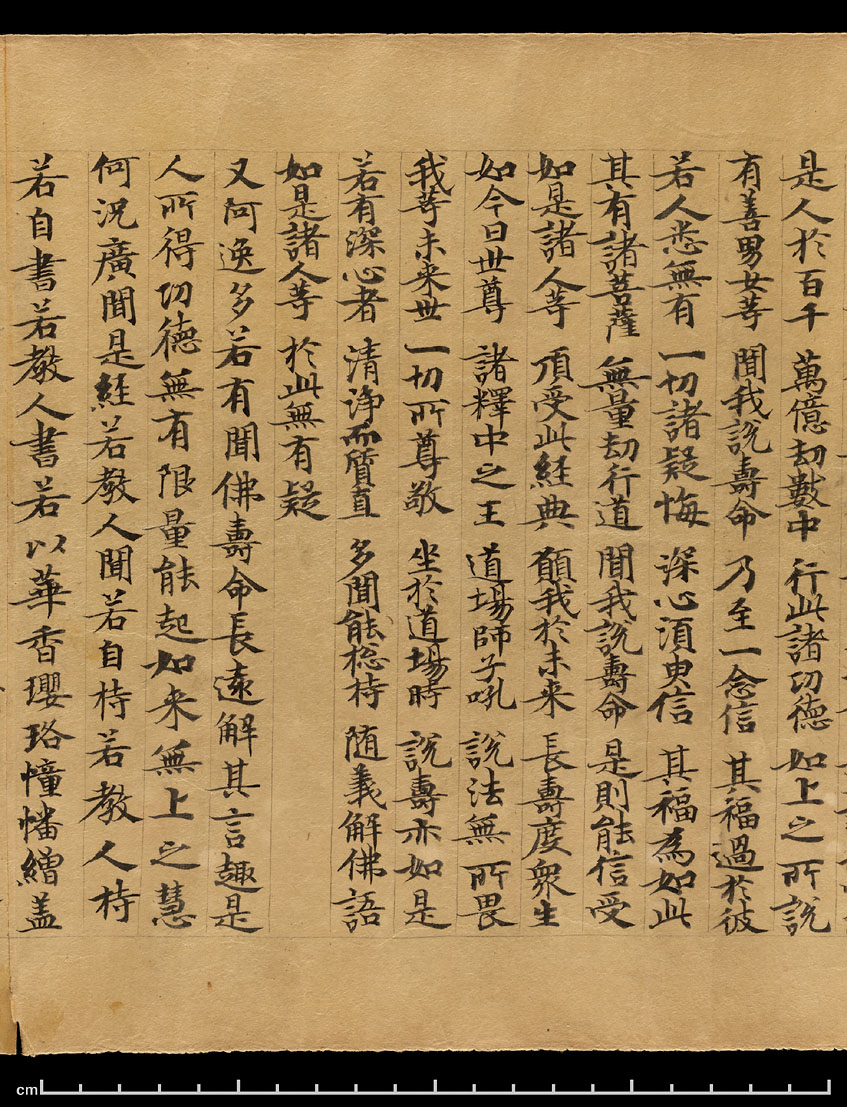 是人於百千 萬億劫數中 行此諸功德 如上之所說
有善男女等 聞我說壽命 乃至一念信 其福過於彼
若人悉無有 一切諸疑悔 深心須臾信 其福為如此
其有諸菩薩 無量劫行道 聞我說壽命 是則能信受
如是諸人等 頂受此経典 願我於未来 長壽度衆生
如今日世尊 諸釋中之王 道場師子吼 說法無所畏
我等未来世 一切所尊敬 坐於道場時 說壽亦如是
若有深心者 清浄而質直 多聞能捴持 随義解佛語
如是諸人等 於此無有疑
又阿逸多若有聞佛壽命長遠解其言趣是
人所得功德無有限量能起如来無上之慧
何況廣聞是経若教人聞若自持若教人持
若自書若教人書若以華香瓔珞幢幡繒盖